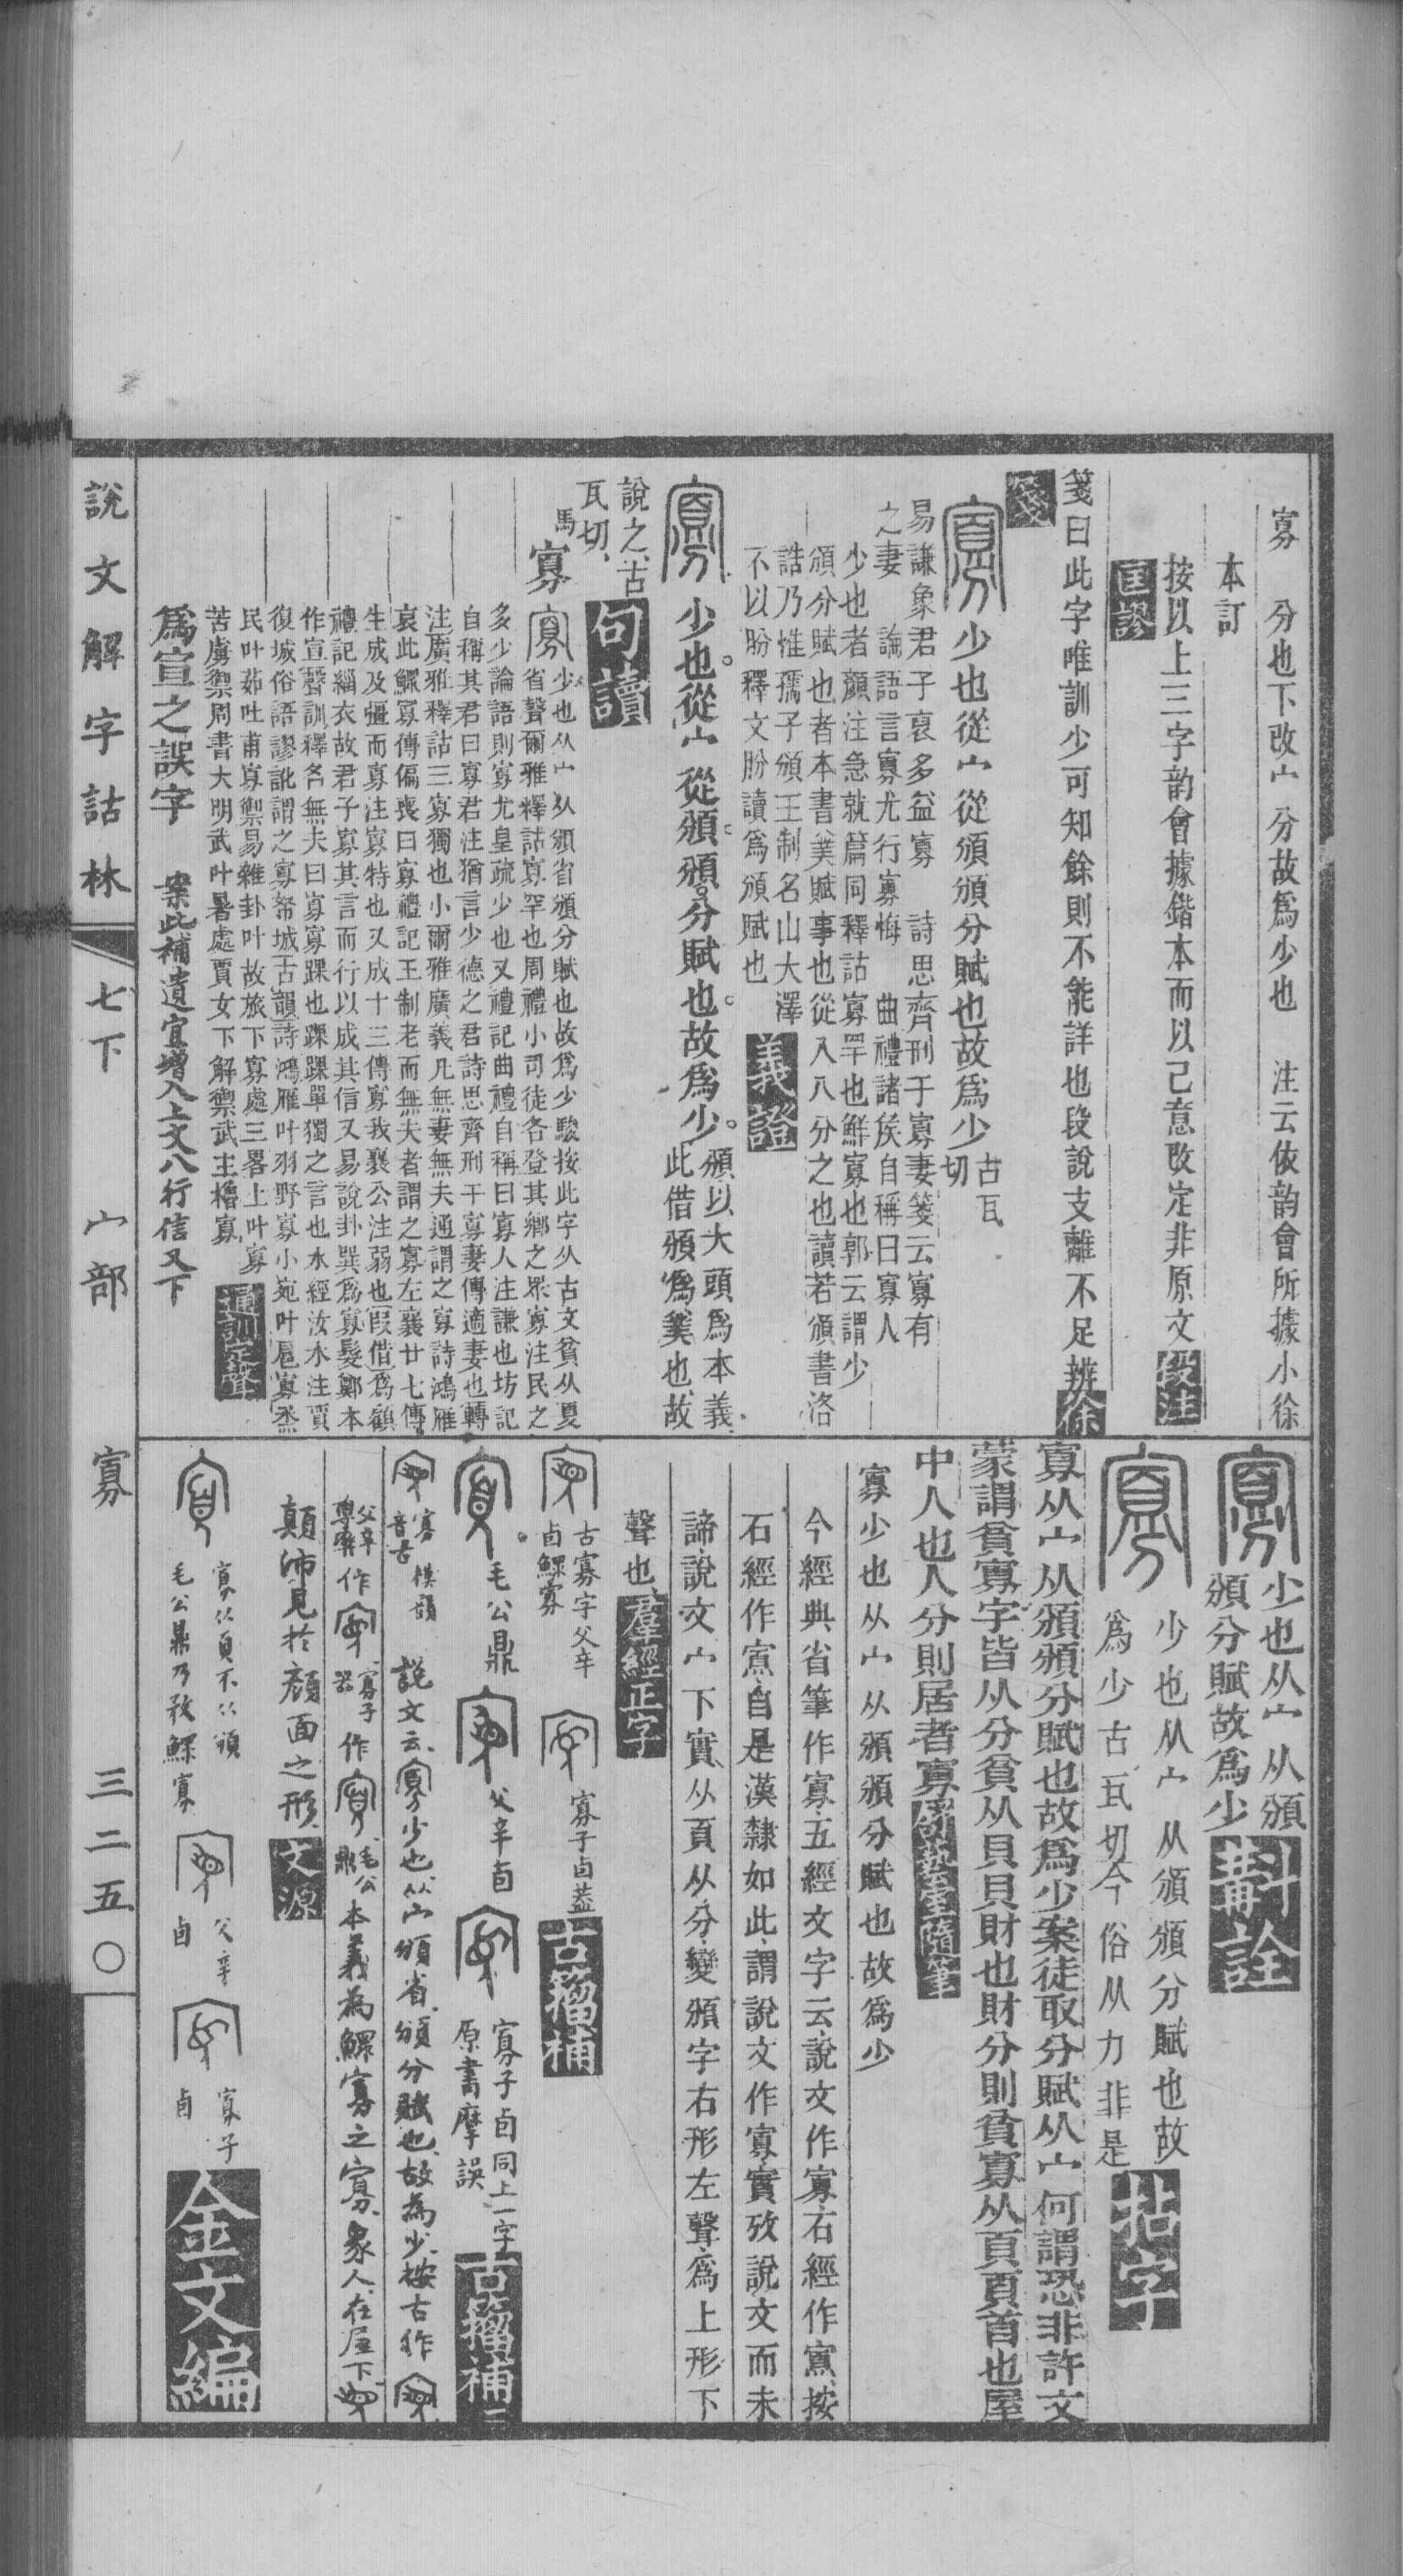 寡　分也下改宀分故爲少也　注云依韵會所據小徐
本訂
按以上三字韵會據鍇本而以己意改定非原文段注
匡謬
箋曰此字唯訓少可知餘則不能詳也段說支離不足辨徐
箋
少也從宀從頒頒分賦也故爲少古瓦
切
易謙象君子裒多益寡　詩思齊刑于寡妻箋云寡有
之妻　論語言寡尤行寡悔　曲禮諸侯自稱曰寡人
少也者顏注急就篇同釋詁寡罕也鮮寡也郭云謂少
頒分賦也者本書䒱賦事也從入八分之也讀若頒書洛
誥乃惟孺子頒王制名山大澤
不以盼釋文盼讀爲頒賦也
義證
少也從宀從頒頒分賦也故爲少頒以大頭爲本義
此借頒爲䒱也故
說之古
瓦切
句讀
馬寡
少也从宀从頒省頒分賦也故爲少駿按此字从古文貧从夏
省聲爾雅釋詁寡罕也周禮小司徒各登其鄉之眾寡注民之
多少論語則寡尤皇疏少也又禮記曲禮自稱曰寡人注謙也坊記
自稱其君曰寡君注猶言少德之君詩思齊刑于寡妻傳適妻也轉
注廣雅釋詁三寡獨也小爾雅廣義凡無妻無夫通謂之寡詩鴻雁
哀此鰥寡傳偏喪曰寡禮記王制老而無夫者謂之寡左襄廿七傳
生成及彊而寡注寡特也又成十三傳寡我襄公注弱也叚借爲顧
禮記緇衣故君子寡其言而行以成其信又易說卦巽爲寡髮鄭本
作宣聲訓釋名無夫曰寡寡踝也踝踝單獨之言也水經汝水注賈
復城俗語謬訛謂之寡婦城古韻詩鴻雁叶羽野寡小宛叶扈寡烝
民叶茹吐甫寡禦易雜卦叶故旅下寡處三畧上叶寡
苦虜禦周書大明武叶暑處賈女下解禦武主櫓寡
通訓定聲
爲宣之誤字　案此補遺宜增入上文八行信又下
少也从宀从頒
頒分賦故爲少
斠詮
少也从宀从頒頒分賦也故
爲少古瓦切今俗从力非是
拈字
寡从宀从頒頒分賦也故爲少案徒取分賦从宀何謂恐非許文
蒙謂貧寡字皆从分貧从貝貝財也財分則貧寡从頁頁首也屋
中人也人分則居者寡
寡少也从宀从頒頒分賦也故爲少
今經典省筆作寡五經文字云說文作寡石經作寡按
石經作寡自是漢隸如此謂說文作寡實攷說文而未
諦說文宀下實从頁从分變頒字右形左聲爲上形下
聲也
羣經正字
古寡字父辛
卣鰥寡
寡子卣蓋
古籀補
毛公鼎
父辛卣
寡子卣同上一字
原書摩誤
古籀補
寡模韻
音古
說文云寡少也从宀頒省頒分賦也故爲少按古作
父辛
作
寡子
作
毛公
鼎
本義爲鰥寡之寡象人在屋下
顛沛見於顏面之形
文源
寡从頁不从頒
毛公鼎乃孜鰥寡
父辛
卣
寡子
卣
金文編
說文解字詁林
七下
宀部
寡
三二五〇